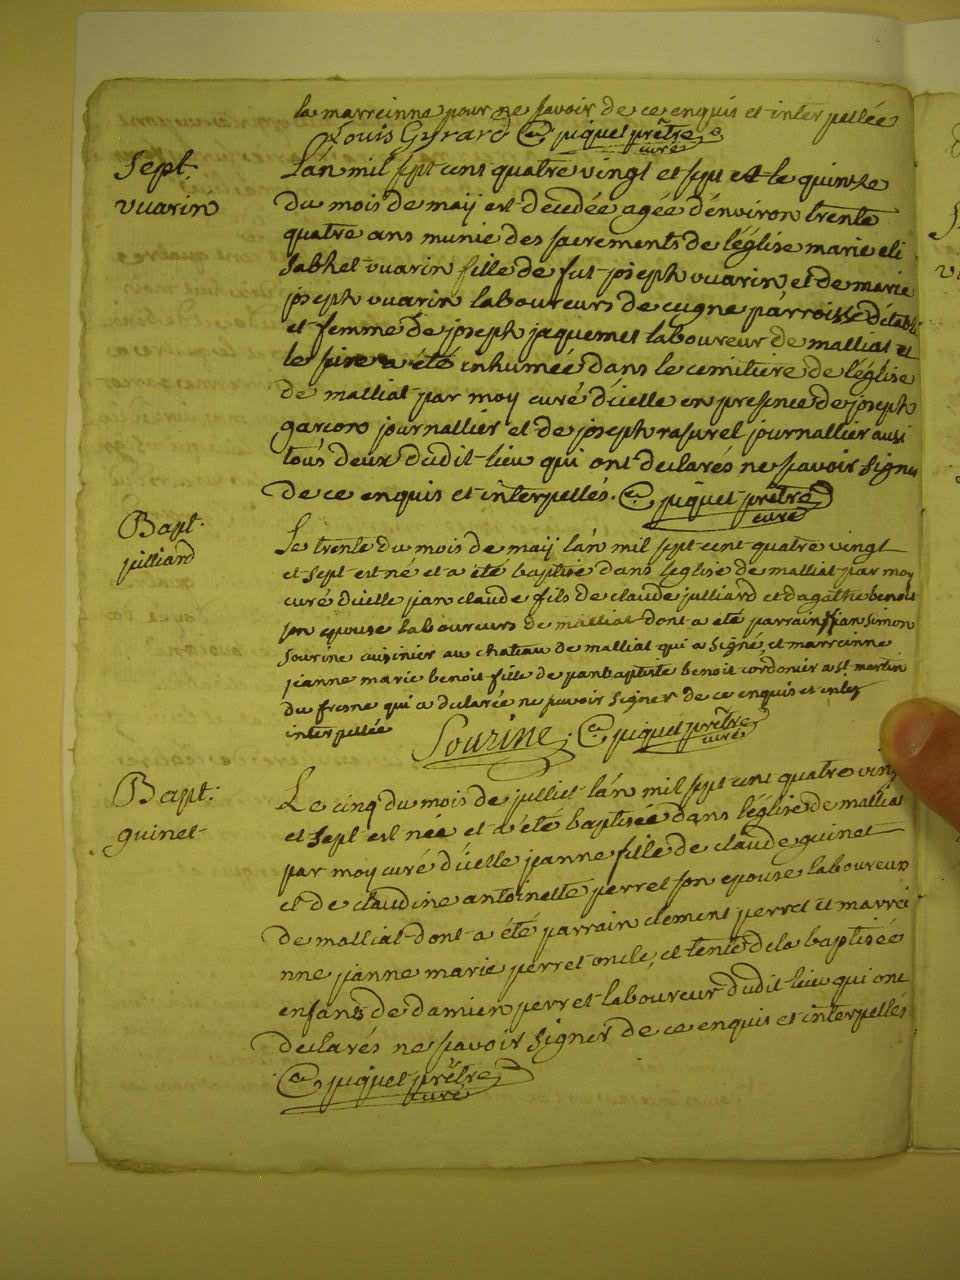 la marreinne pour ne savoir de ce enquis et interpellée
Louis Gyrard C. piquet prêtre
curé
Sept.
vuarin
L'an mil sept cens quatre vingt et sept et le quinze
du mois de maij est decedée agée d'environ trente
quatre ans munie des sacrements de l'église marie eli
sabhet vuarin fille de fut joseph vuarin, et de marie
joseph vuarin laboureurs de cugne parroisse d'etable
et femme de joseph jaquemet laboureur de malliat et
le a été inhumée dans le cemitiere de l'église
de malliat par moy curé d'icelle en presence de joseph
garcon journallier et de joseph rasurel journallier ausi
tous deux dudit lieu qui ont declarés ne savoir signer
de ce enquis et interpellés. C. piquet prêtre
curé
Bapt.
julliard
Le trente du mois de maij l'an mil sept cent quatre vingt
et sept est né et a été baptisé dans l'eglise de malliat par moy
curé d'icelle jean claude fils de claude julliard et d'agathe benoit
son epouse laboureurs de malliat dont a été parrain jean simon
sourine cuisinier au chateau de malliat qui a signé, et marreinne
jeanne marie benoit fille de jeanbaptiste benoit cordonier a st. martin
du fresne qui a declarée ne savoir signer de ce enquis et inter
interpellée Sourine. C. piquet prêtre
curé
Bapt.
guinet
Le cinq du mois de julliet l'an mil sept cent quatre ving
et sept est née et a été baptisée dans l'église de malliat
par moy curé d'icelle jeanne fille de claude guinet
et de claudine antoinette perret son epouse laboureurs
de malliat dont a été parrain clement perret et marrei
nne jeanne marie perret oncle, et tente de la baptisée
enfants de damien perret laboureur dudit lieu qui ont
declarés ne savoir signer de ce enquis et interpellés
C. piquet prêtre
curé